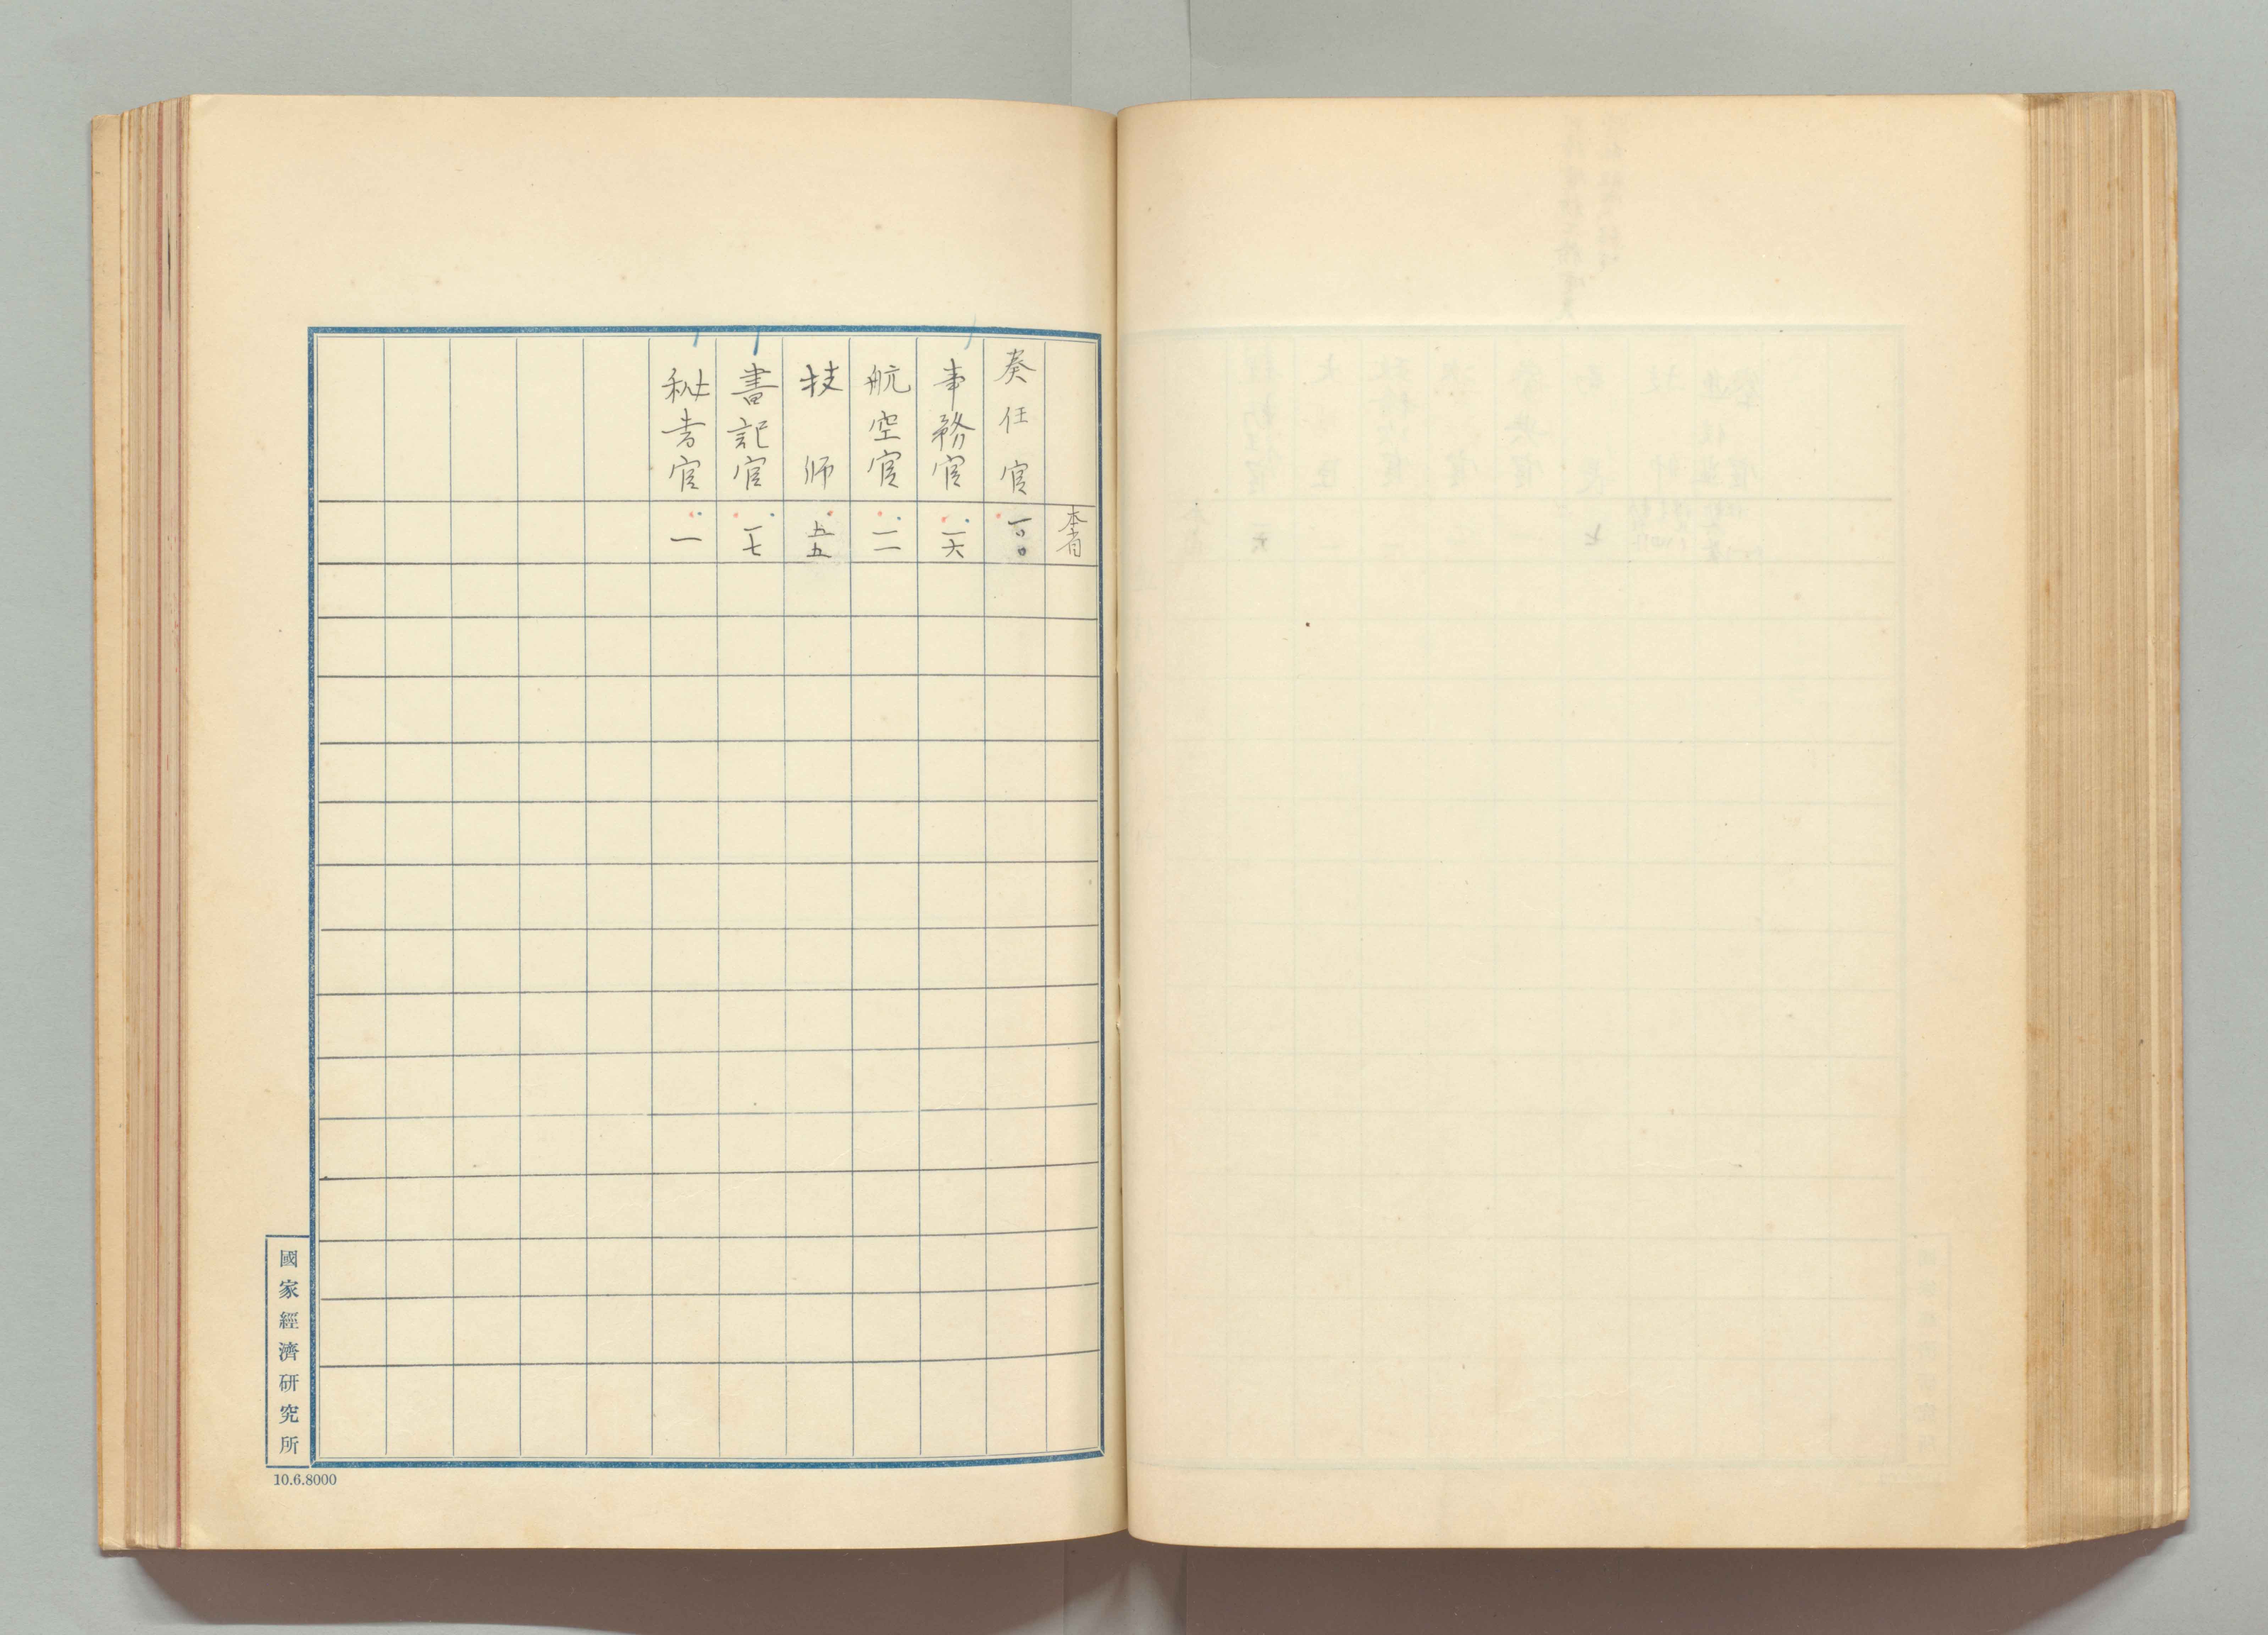 本省
奏任官 一〇〇
事務官 一六
航空官 一一
技師 五五
書記官 一七
秘書官 一
國家經濟研究所
10.6.8000